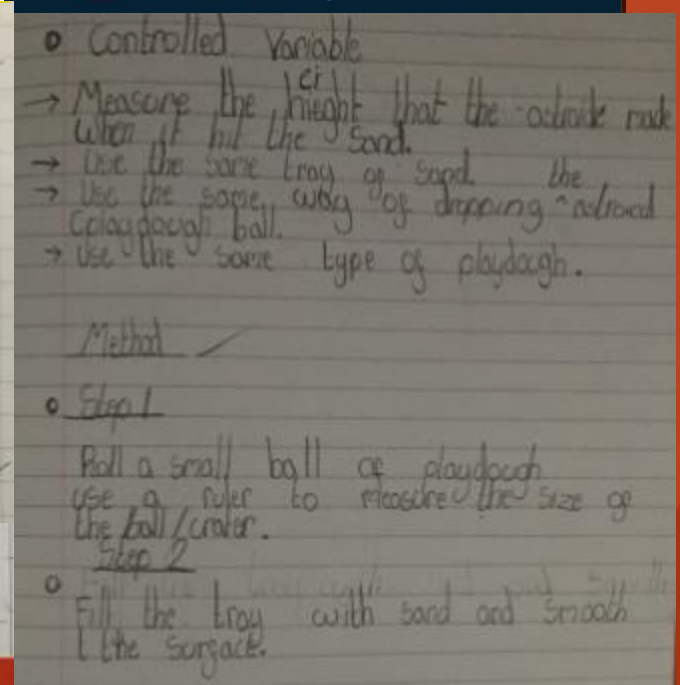 Controlled Variable
→ Measure the hieght that the astroide made
ei
when it hit the sand.
→ Use the same tray of sand.
→ Use the same way of dropping ^ the astroied
(playdough ball.
→ Use the same type of playdough.
Method
Step 1
Roll a small ball of playdough
use a ruler to measure the size of
the ball/crater.
Step 2
Fill the tray with sand and smooth
the surface.